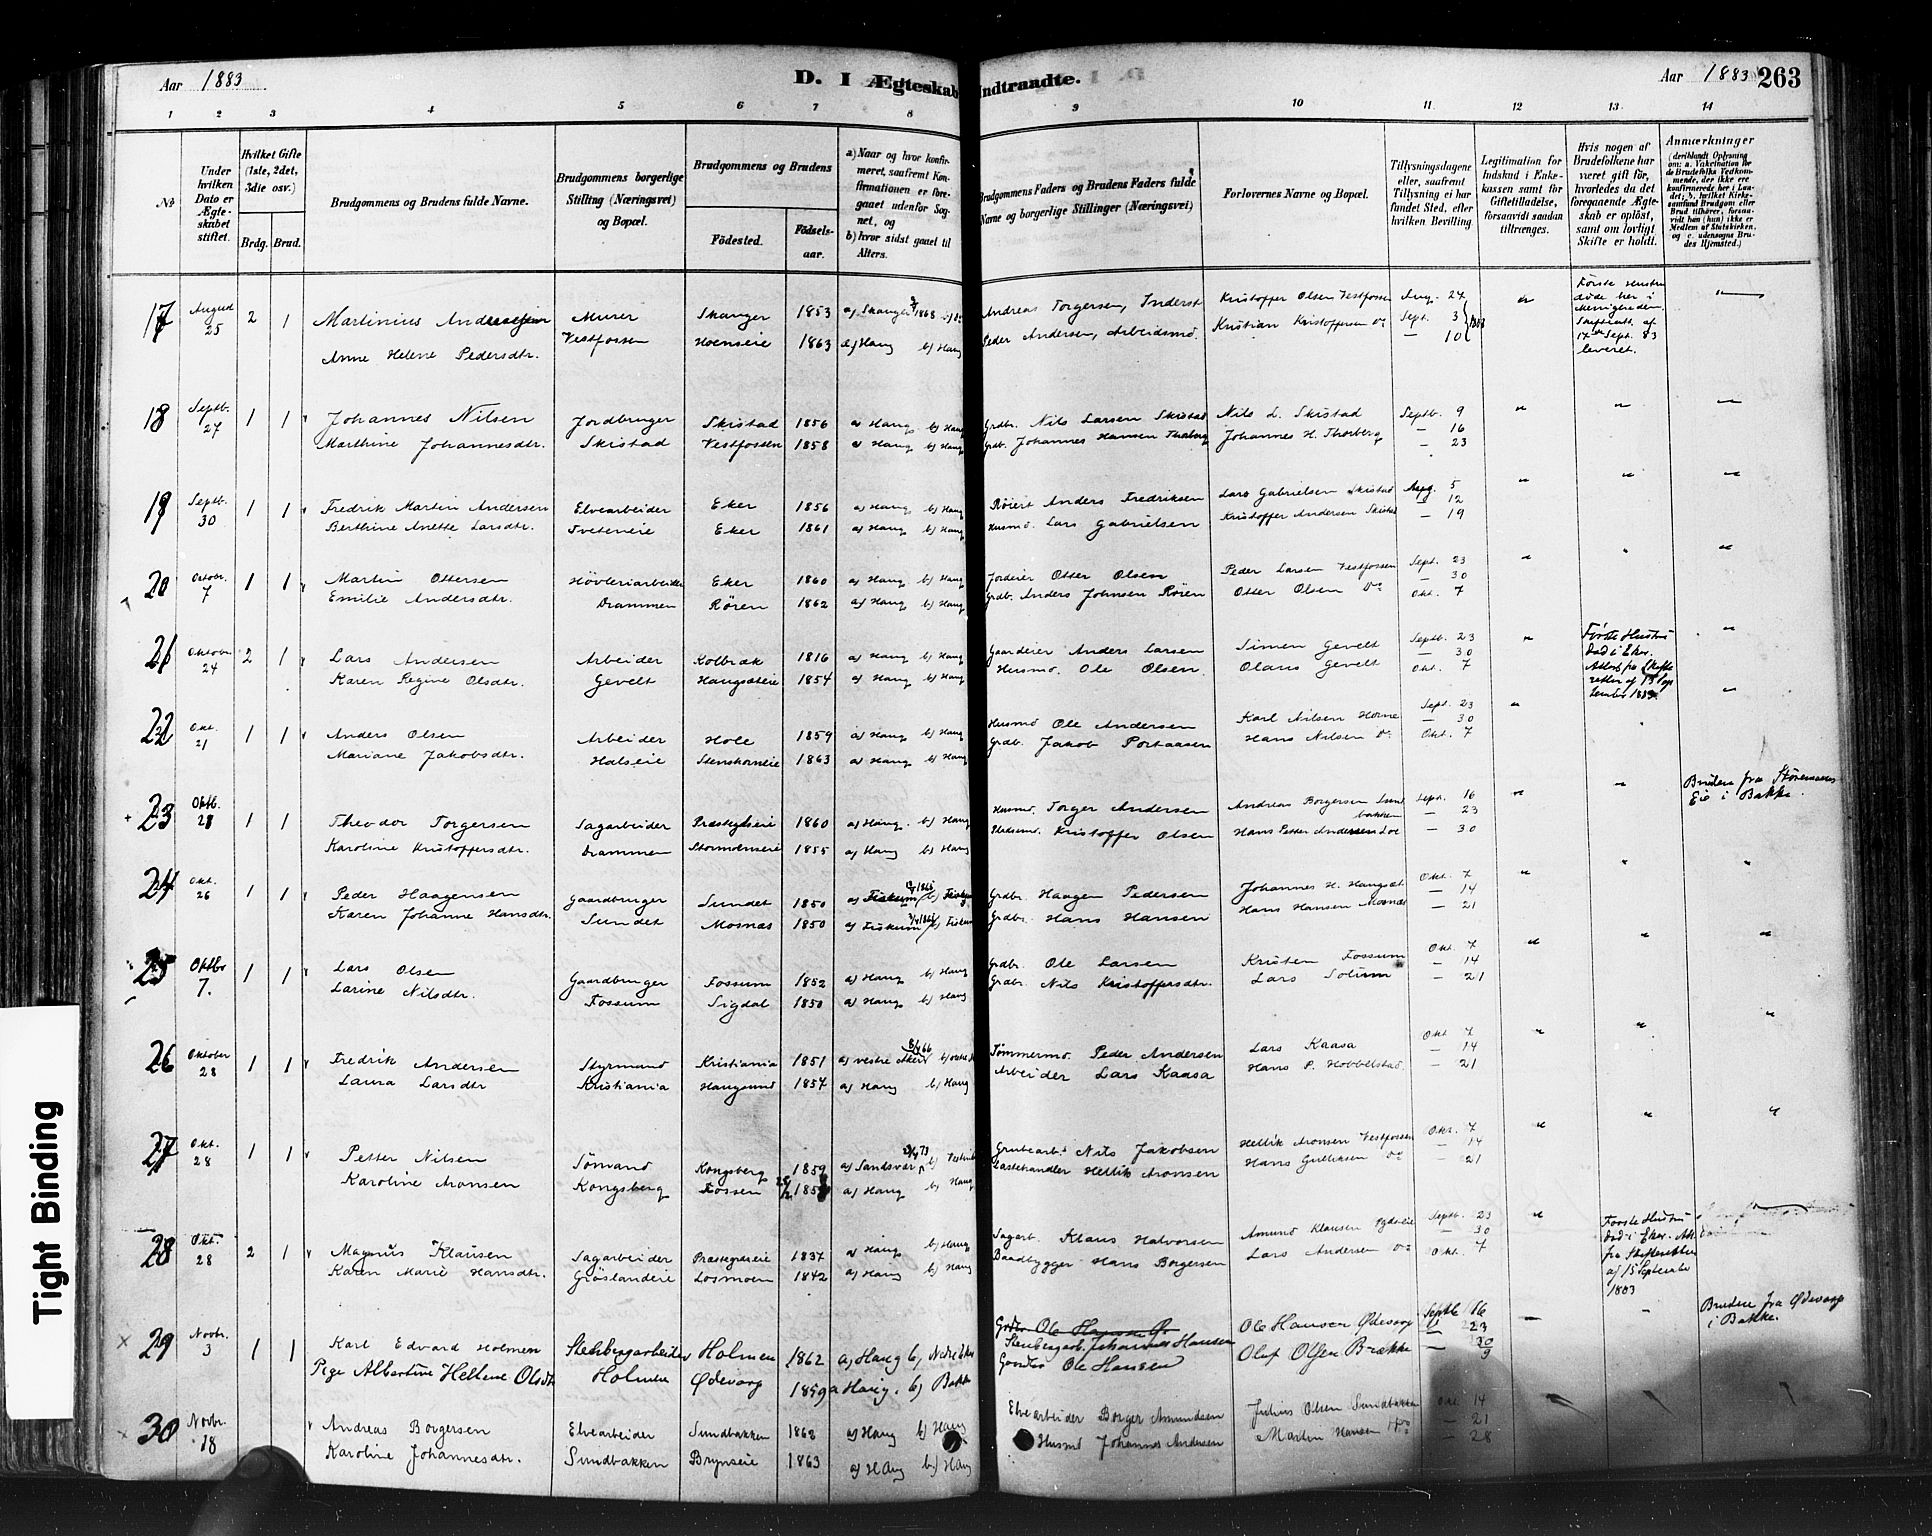 Aar 1883
D. I Ægteskab Indtraadte.
Aar 1883 263
1 2 3 4 5 6 7 8 9 10 11 12 13 14
№
Under hvilken Dato er Ægteskabet stiftet.
Hvilket Gifte (1ste, 2det, 3die osv.)
Brdg. Brud.
Brudgommens og Brudens fulde Navne.
Brudgommens borgerlige Stilling (Næringsvei) og Bopæl.
Brudgommens og Brudens
Födested. Födselsaar.
a) Naar og hvor konfirmeret, saafremt Konfirmationen er foregaaet udenfor Sognet, og
b) hvor sidst gaaet til Alters.
Brudgommens Faders og Brudens Faders fulde Navne og borgerlige Stillinger (Næringsvei)
Forlovernes Navne og Bopæl.
Tillysningsdagene eller, saafremt Tillysning ei har fundet Sted, efter hvilken Bevilling
Legitimation for Indskud i Enkekassen samt for Giftetilladelse, forsaavidt saadan tiltrænges.
Hvis nogen af Brudefolkene har været gift för, hvorledes da det foregaaende Ægteskab er oplöst, samt om lovligt Skifte er holdt.
Anmærkninger
17 August 25 2 1 Martinius Murer Skanger 1853 a) Skanger 1868 Andreas Torgersen, Inderst Kristoffer Olsen Vestfossen Aug. 24 " Förste Hustru döde her i
Anne Helene Pedersdtr. Vestfossen Hoenseie 1863 a) Haug b) Haug Peder Andersen, Arbeidsmd. Kristian Kristoffersen Do Sept. 3 – 10 Skifteatt. af 17de Sept. 83 leveret.
18 Septb. 27 1 1 Johannes Nilsen Jordbruger Skistad 1856 a) Haug b) Haug Grdbr. Nils Larsen Skistad Nils L. Skistad Septb. 9 " " "
Marthine Johannesdtr. Skistad Vestfossen 1858 a) Haug b) Haug Grdb. Johannes Hansen Thorberg Johannes H. Thorberg – 16 – 23
19 Septb. 30 1 1 Fredrik Martin Andersen Elvearbeider Eker 1856 a) Haug b) Haug Röiert Anders Fredriksen Lars Gabrielsen Skistad Aug. 5 " " "
Berthine Anette Larsdtr. Tveteneie Eker 1861 a) Haug b) Haug Husmd. Lars Gabrielsen Kristoffer Andersen Skistad – 12 – 19
20 Octobr. 7 1 1 Martin Ottersen Hövleriarbeider Eker 1860 a) Haug b) Haug Jordeier Otter Olsen Peder Larsen Vestfossen Sept. 23 " " "
Emilie Andersdtr. Drammen Rören 1862 a) Haug b) Haug Grdb. Anders Johnsen Rören Otter Olsen Do – 30 Okt. 7
21 Oktobr 24 2 1 Lars Andersen Arbeider Kolbræk 1816 a) Haug b) Haug Gaardeier Anders Larsen Simen Gevelt Septb. 23 " Förste Hustru död i Eker. "
Karen Regine Olsdtr. Gevelt Haugsæteie 1854 a) Haug b) Haug Husmd. Ole Olsen Olaus Gevelt – 30 Okt. 7 Attest fra Skifteretten af 15 September 1883.
22 Okt. 21 1 1 Anders Olsen Arbeider Hole 1859 a) Haug b) Haug Husmd Ole Andersen Karl Nilsen Horne Sept. 23 " " "
Mariane Jakobsdtr. Halseie Stenskorneie 1863 a) Haug b) Haug Grdb. Jakob Portaasen Hans Nilsen Do – 30 Okt. 7
23 Oktb. 28 1 1 Theodor Torgersen Sagarbeider Præstegdseie 1860 a) Haug. b) Haug Husmd. Torger Andersen Andreas Borgersen Sundbakken Sept. 16 " " Bruden fra
Karoline Kristoffersdtr. Drammen Stormoenseie 1855 a) Haug b) Haug Pladsmd. Kristoffer Olsen Hans Petter Andersen Loe – 23 – 30 Eie i Bakke.
24 Okt. 26 1 1 Peder Haagensen Gaardbruger Sundet 1850 a) Fiskum 1865 b) Fiskum Grdbr. Haagen Pedersen Johannes H. Haugsæt Okt. 7 " " "
Karen Johanne Hansdtr. Sundet Mosnæs 1850 a) Fiskum b) Fiskum Grdbr. Hans Hansen Hans Hansen Mosnæs – 14 – 21
25 Oktbr 7. 1 1 Lars Olsen Gaardbruger Fossum 1852 a) Haug b) Haug Grdbr. Ole Larsen Kristen Fossum Okt. 7 " " "
Larine Nilsdtr. Fossum Sigdal 1850 a) Haug b) Haug Grdbr. Nils Kristoffersdtr. Lars Solum – 14 – 21
26 Oktober 28 1 1 Fredrik Andersen Styrmand Kristiania 1851 a) vestre Aker Tömmermd. Peder Andersen Lars Kaasa Okt. 7 " " "
Laura Larsdtr Kristiania Haugsund 1857 a) Haug b) Haug Arbeider Lars Kaasa Hans P. Hobbelstad – 14 – 21
27 Okt. 28 1 1 Petter Nilsen Sömand Kongsberg 1859 a) Sandsvær b) Grubearb. Nils Jakobsen Hellik Aronsen Vestfossen Okt. 7 " " "
Karoline Aronsen Kongsberg Fossen a) Haug b) Haug Lastehandler Hellik Aronsen Hans Gulliksen Do – 14 – 21
28 Okt. 28 2 1 Magnus Klausen Sagarbeider Præstegdseie 1837 a) Haug b) Haug Sagarb. Klaus Halvorsen Amund Klausen Septb. 23 " Förste Hustru död i Eker. Att.
Karen Marie Hansdtr. Gröslandeie Losmoen 1842 a) Haug b) Haug Baadbygger Hans Borgersen Lars Andersen Do – 30 Okt. 7 fra Skifteretten af 15 September 1883
29 Novbr. 3 1 1 Karl Edvard Holmen Stenbergarbeider Holmen 1862 a) Haug b) Nedre Eker Stenbergarb. Johannes Hansen Ole Hansen Ødevarp Septbr 16 – " Bruden fra Ødevarp i Bakke.
Pige Albertine Hellene Olsdtr Holmen Ødevarp 1859 a Haug. b) Bakke Gaardbr Ole Hansen Oluf Olsen Brække – 23 – 30
30 Novbr. 18 Andreas Borgersen Elvearbeider Sundbakken 1862 a) Haug b) Haug Elvearbeider Borger Amundsen Julius Olsen Sundbakken Okt. 14 " " "
Karoline Johannesdtr. Sundbakken Brynseie 1863 a) Haug b) Haug Husmd Johannes Andersen Martin Hansen Do – 21 – 28
Tight Binding